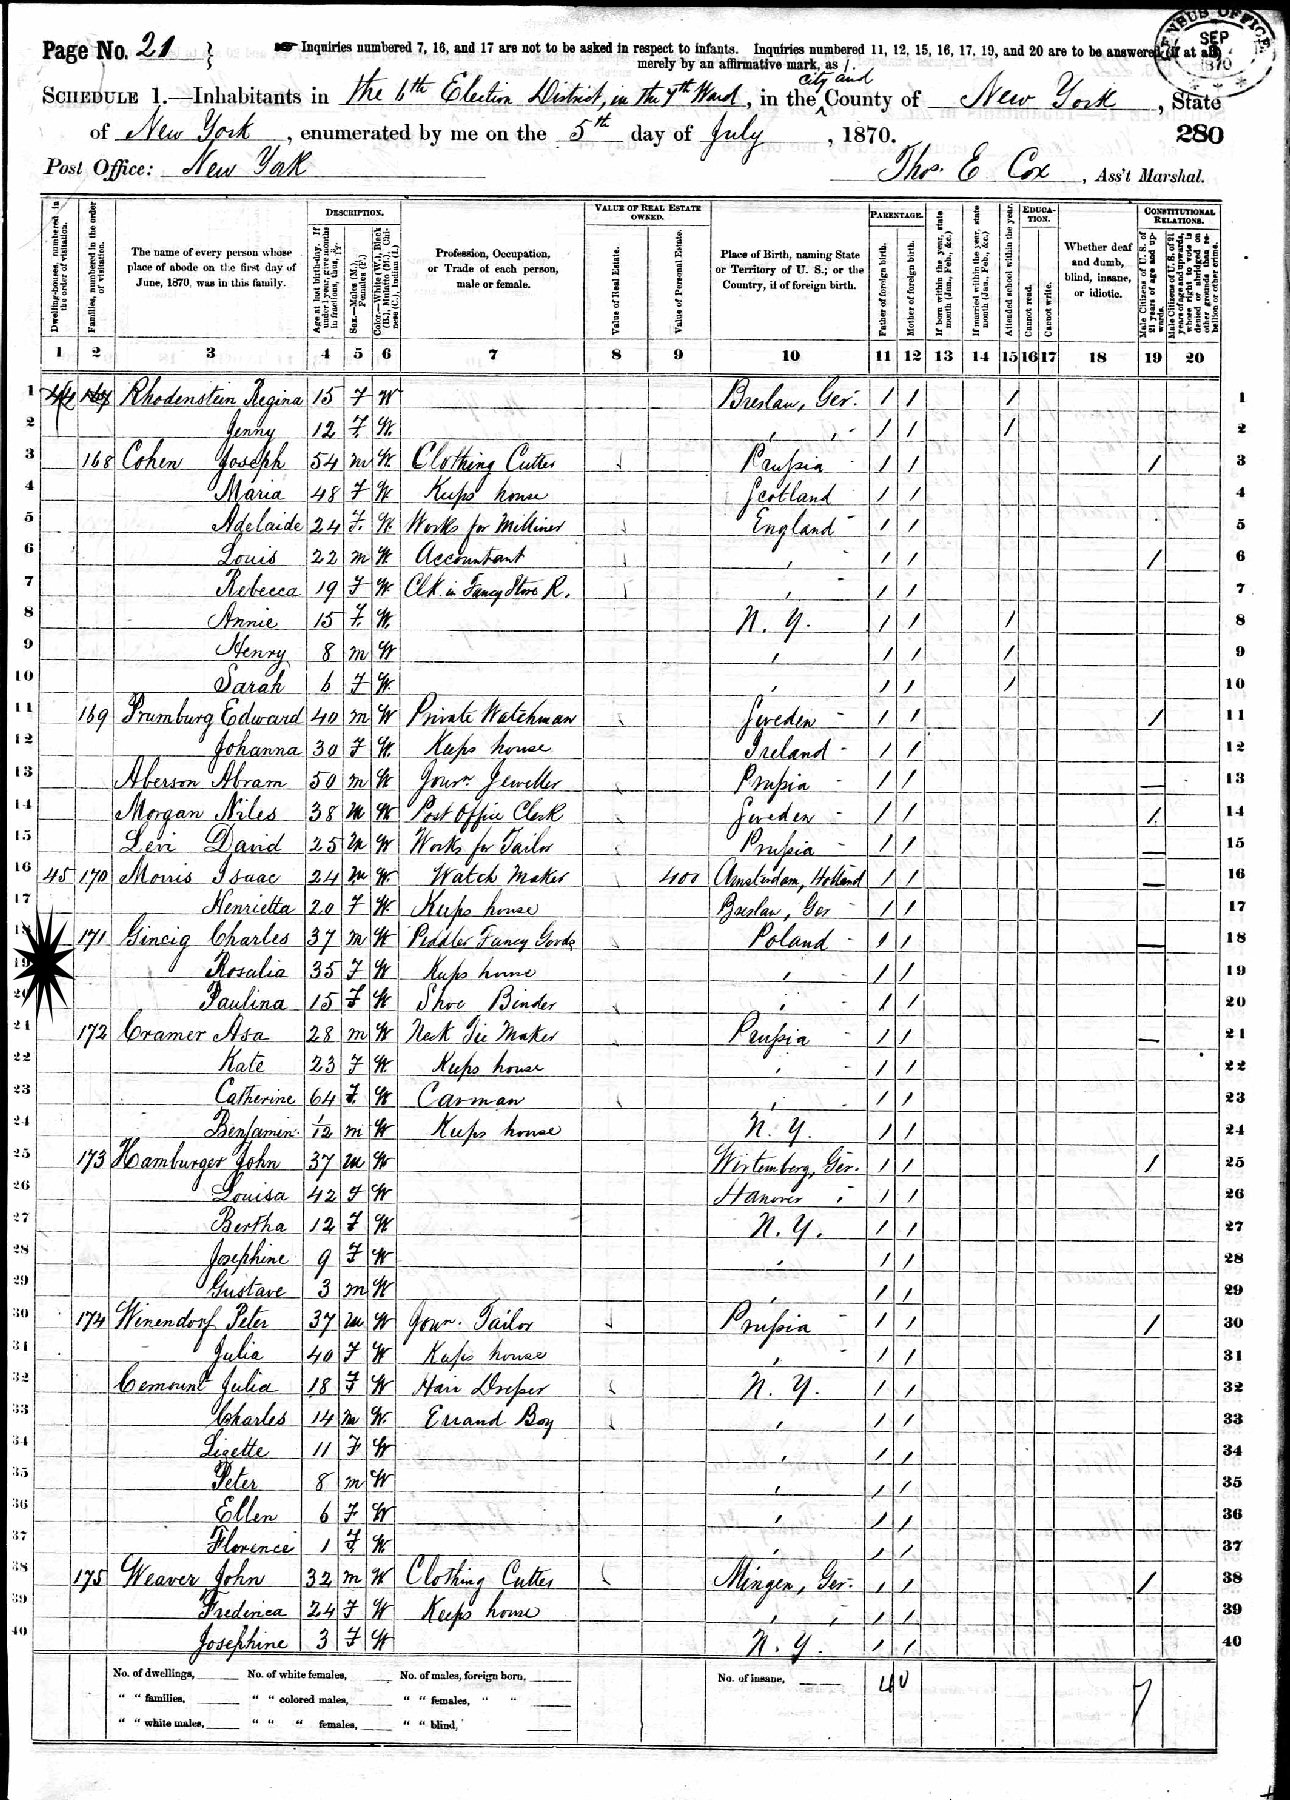 Page No. 21 } Inquiries numbered 7, 16, and 17 are not to be asked in respect to infants. Inquiries numbered 11, 12, 15, 16, 17, 19, and 20 are to be answered (if at all)
merely by an affirmative mark, as /.
CENSUS OFFICE SEP 1870
SCHEDULE 1.—Inhabitants in the 6th Election District, in the 9th Ward, in the city and County of New York, State
of New York, enumerated by me on the 5th day of July, 1870. 280
Post Office: New York Thos. E Cox, Ass't Marshal.
Dwelling-houses, numbered in the order of visitation.
Families, numbered in the order of visitation.
The name of every person whose place of abode on the first day of June, 1870, was in this family.
DESCRIPTION.
Age at last birth-day. If under 1 year, give months in fractions, thus, 3/12
Sex.—Males (M.), Females (F.)
Color.—White (W.), Black (B.), Mulatto (M.), Chinese (C.), Indian (I.)
Profession, Occupation, or Trade of each person, male or female.
VALUE OF REAL ESTATE OWNED.
Value of Real Estate.
Value of Personal Estate.
Place of Birth, naming State or Territory of U. S.; or the Country, if of foreign birth.
PARENTAGE.
Father of foreign birth.
Mother of foreign birth.
If born within the year, state month (Jan., Feb., &c.)
If married within the year, state month (Jan., Feb., &c.)
Attended school within the year.
EDUCATION.
Cannot read.
Cannot write.
Whether deaf and dumb, blind, insane, or idiotic.
CONSTITUTIONAL RELATIONS.
Male Citizens of U. S. of 21 years of age and upwards.
Male Citizens of U. S. of 21 years of age and upwards, whose right to vote is denied or abridged on other grounds than rebellion or other crime.
1 2 3 4 5 6 7 8 9 10 11 12 13 14 15 16 17 18 19 20
1 44 167 Rhodenstein Regina 15 F W Breslau, Ger. / / / 1
2 Jenny 12 F. W. , , / / / 2
3 168 Cohen Joseph 54 m W. Clothing Cutter Prussia / / / 3
4 Maria 48 F W Keeps house Scotland / / 4
5 Adelaide 24 F. W. Works for Milliner England / / 5
6 Louis 22 m W Accountant , / / / 6
7 Rebecca 19 F W Clk in Fancy Store R. , / / 7
8 Annie 15 F. W. N. Y. / / / 8
9 Henry 8 m W , / / / 9
10 Sarah 6 F W. , / / / 10
11 169 Prumburg Edward 40 m W Private Watchman Sweden / / / 11
12 Johanna 30 F W. Keeps house Ireland / / 12
13 Aberson Abram 50 m W Journ. Jeweller Prussia / / — 13
14 Morgan Niles 38 m W Post Office Clerk Sweden / / / 14
15 Levi David 25 m W Works for Tailor Prussia / / — 15
16 45 170 Morris Isaac 24 m W. Watch Maker 400 Amsterdam, Holland / / — 16
17 Henrietta 20 F W. Keeps house Breslau, Ger / / 17
18 171 Gincig Charles 37 m W Peddler Fancy Goods Poland / / — 18
19 Rosalia 35 F W Keeps house , / / 19
20 Paulina 15 F W Shoe Binder , / / 20
21 172 Cramer Asa 28 m W Neck Tie Maker Prussia / / — 21
22 Kate 23 F W Keeps house , / / 22
23 Catherine 64 F. W Carman , / / 23
24 Benjamin 1/12 m W Keeps house N. Y. / / 24
25 173 Hamburger John 37 m W Wirtemberg, Ger. / / / 25
26 Louisa 42 F W Hanover , / / 26
27 Bertha 12 F W N. Y. / / 27
28 Josephine 9 F W , / / 28
29 Gustave 3 m W , / / 29
30 174 Winendorf Peter 37 m W Journ. Tailor Prussia / / / 30
31 Julia 40 F W Keeps house , / / 31
32 Cemount Julia 18 F W Hair Dresser N. Y. / / 32
33 Charles 14 m W. Errand Boy , / / 33
34 Lizette 11 F W , / / 34
35 Peter 8 m W , / / 35
36 Ellen 6 F W , / / 36
37 Florence 1 F. W , / / 37
38 175 Weaver John 32 m W Clothing Cutter Mingen, Ger. / / / 38
39 Frederica 24 F W Keeps house , , / / 39
40 Josephine 3 F W N. Y. / / 40
No. of dwellings, No. of white females, No. of males, foreign born, No. of insane, 40 7
" " families, " " colored males, " " females, " "
" " white males, " " " females, " " blind,